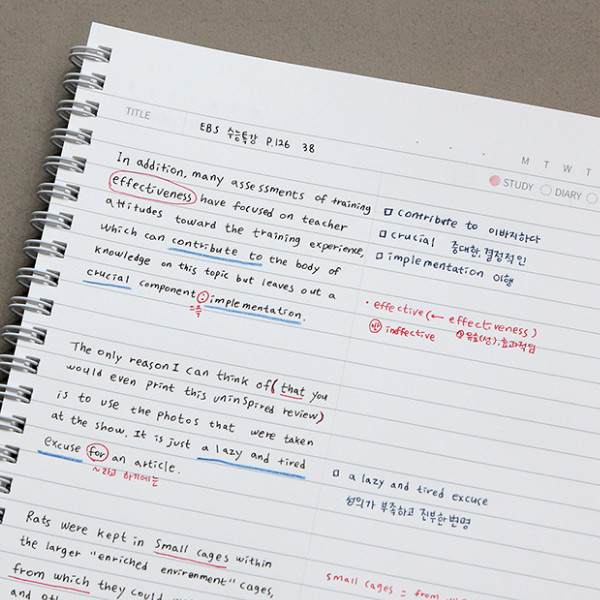 TITLE
EBS 수능특강 P.126 38
M T W T
STUDY DIARY
In addition, many assessments of training
effectiveness have focused on teacher
attitudes toward the training experience,
which can contribute to the body of
knowledge on this topic but leaves out a
crucial component : implementation.
=즉
contribute to 이바지하다
crucial 중대한, 결정적인
implementation 이행
· effective (← effectiveness)
반 ineffective 유효(성), 효과적임
The only reason I can think of (that you
would even print this uninspired review)
is to use the photos that were taken
at the show. It is just a lazy and tired
excuse for an article.
~라고 하기에는
a lazy and tired excuse
성의가 부족하고 진부한 변명
Rats were kept in small cages within
the larger "enriched environment" cages,
from which they could
and
small cages = from